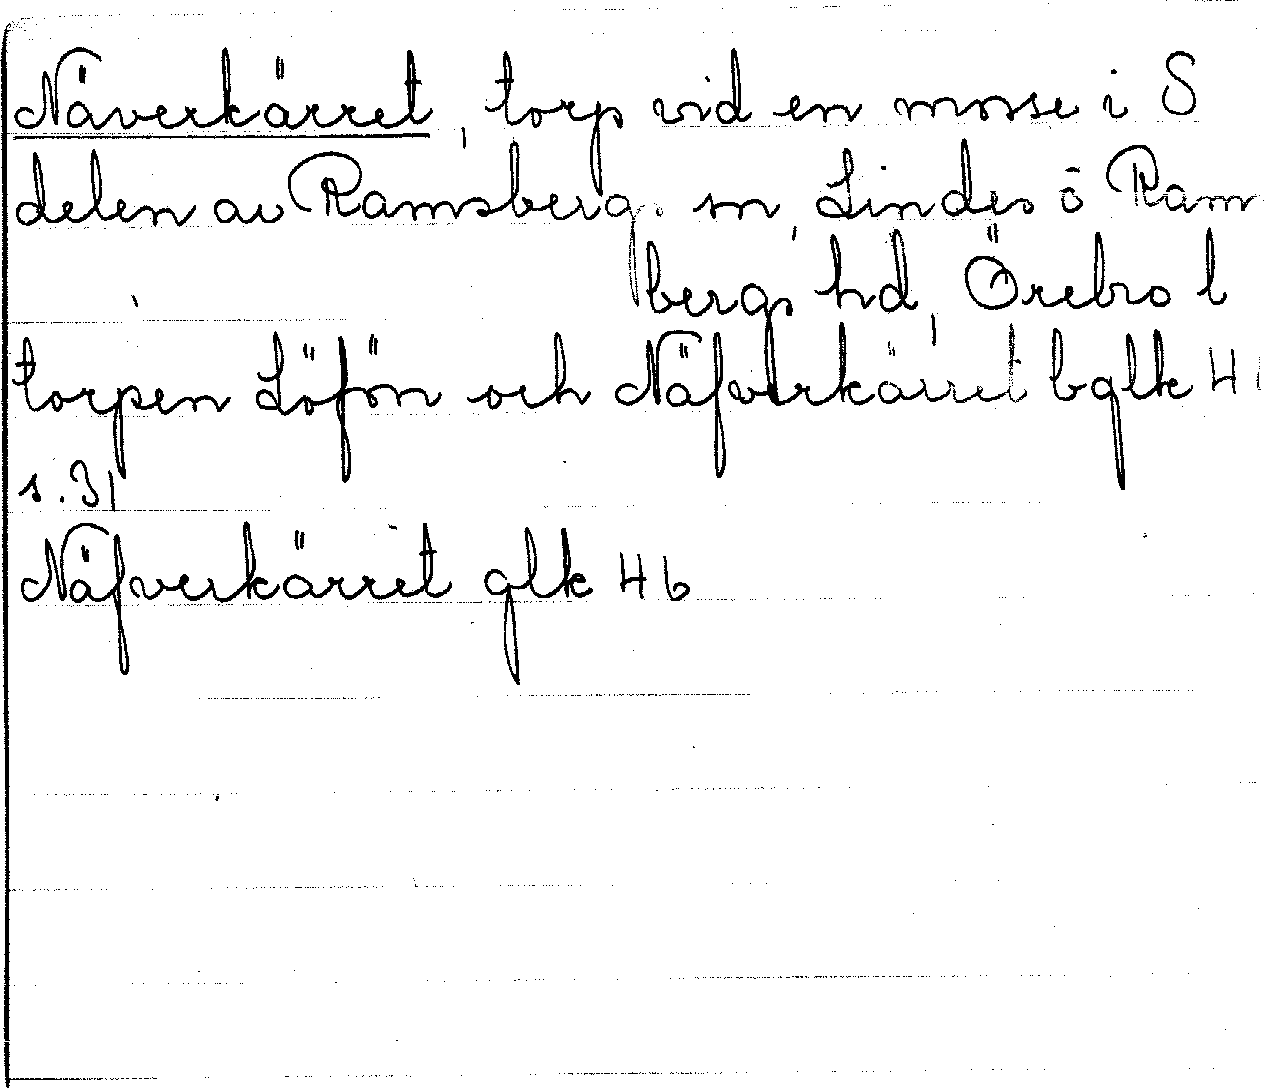 Näverkärret, torp vid en mosse i S
delen av Ramsbergs sn, Lindes o Ram
bergs hd, Örebro l
torpen Löfön och Näfverkärret bglk 41
s. 31
Näfverkärret glk 46